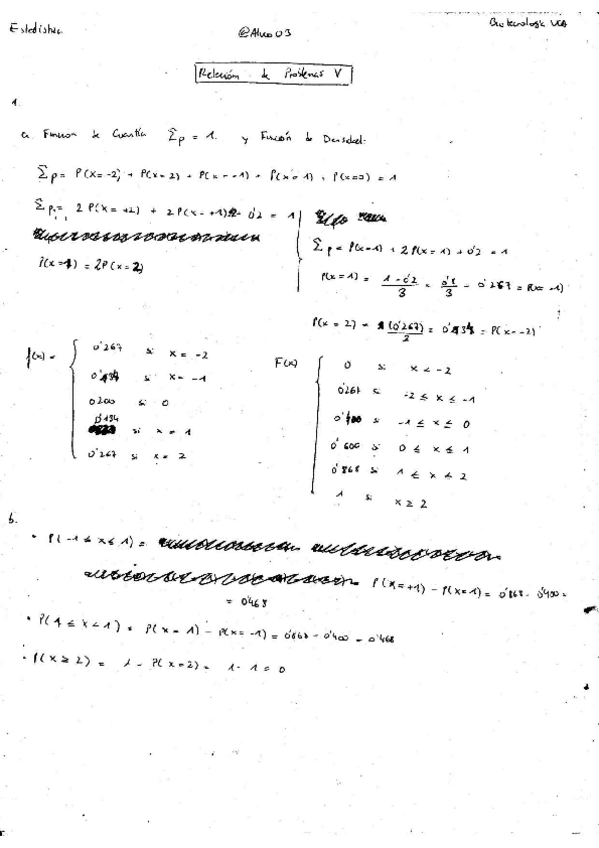 Estadística @Alvaro03 Biotecnología UCA
Relación de Problemas V
1.
a. Función de Cuantía Σp = 1. y Función de Densidad:
Σp = P(X=-2) + P(X=2) + P(X=-1) + P(X=1) + P(X=0) = 1
Σp = 2P(X=+2) + 2P(X=+1) + 0'2 = 1
P(X=1) = 2P(X=2)
Σp = P(X=1) + 2P(X=1) + 0'2 = 1
P(X=1) = 1-0'2 / 3 = 0'8 / 3 = 0'267 = P(X=-1)
P(X=2) = (0'267) / 2 = 0'134 = P(X=-2)
f(x) =
0'267 si x = -2
0'134 si x = -1
0'200 si 0
0'134 si x = 1
0'267 si x = 2
F(x)
0 si x < -2
0'267 si -2 ≤ x ≤ -1
0'400 si -1 ≤ x ≤ 0
0'600 si 0 ≤ x ≤ 1
0'868 si 1 ≤ x < 2
1 si x ≥ 2
b.
• P(-1 ≤ x ≤ 1) =
P(X=+1) - P(X=1) = 0'868 - 0'400 =
= 0'468
• P(1 ≤ x < 1) = P(X=1) - P(X=-1) = 0'868 - 0'400 = 0'468
• P(X ≥ 2) = 1 - P(X=2) = 1 - 1 = 0